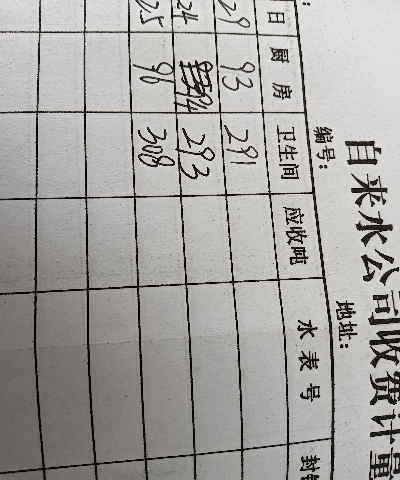 自来水公司收费计量
编号： 地址：
日 厨房 卫生间 应收吨 水表号
29 93 291
24 94 293
25 96 308